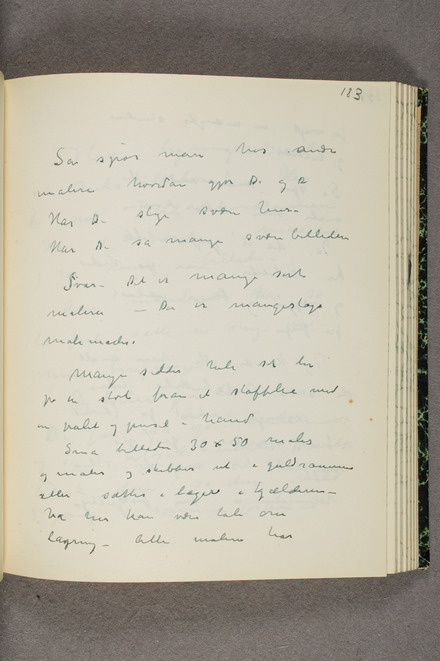 183
Så spør man hos andre
malere hvordan gjør De og De
Har De slige svære hus-
Har De så mange svære billeder
Svar- Det er mange sort
malere — Der er mangeslags
malemåder.
Mange sidder hele sit liv
på en stol foran et staffeli med
en palet og pensel i hånd
Små billeder 30 x 50 males
og males og skikkes ud i guldrammer
eller sættes i lager i kjælderen-
her kan være tale om
lagring- Alle malere har